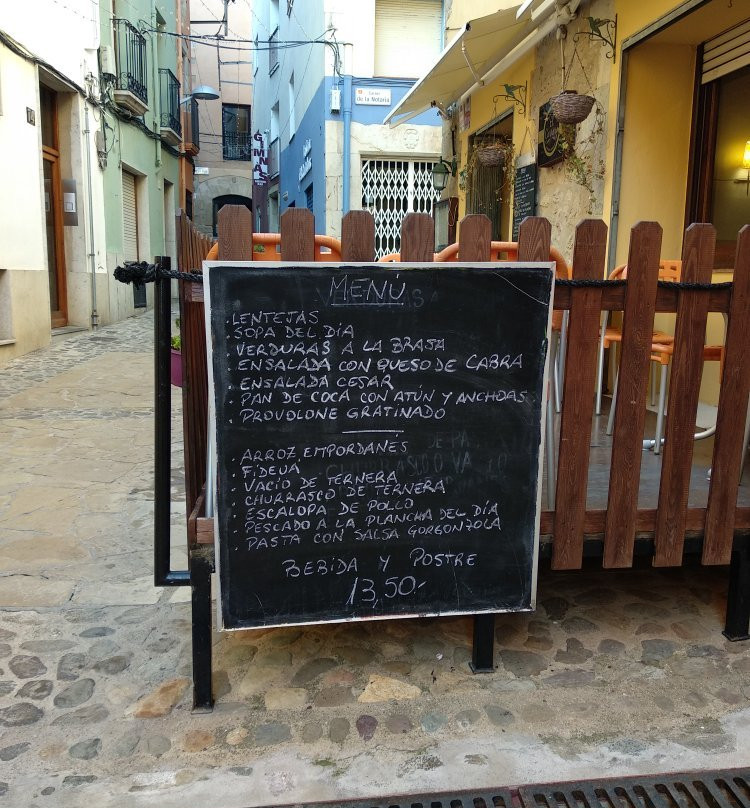 Carrer
de la Notaria
GIMNÀS
MENÚ
. LENTEJAS
. SOPA DEL DÍA
. VERDURAS A LA BRASA
. ENSALADA CON QUESO DE CABRA
. ENSALADA CESAR
. PAN DE COCA CON ATÚN Y ANCHOAS
. PROVOLONE GRATINADO
. ARROZ EMPORDANÉS
. FIDEUA
. VACÍO DE TERNERA
. CHURRASCO DE TERNERA
. ESCALOPA DE POLLO
. PESCADO A LA PLANCHA DEL DÍA
. PASTA CON SALSA GORGONZOLA
BEBIDA Y POSTRE
13,50.-